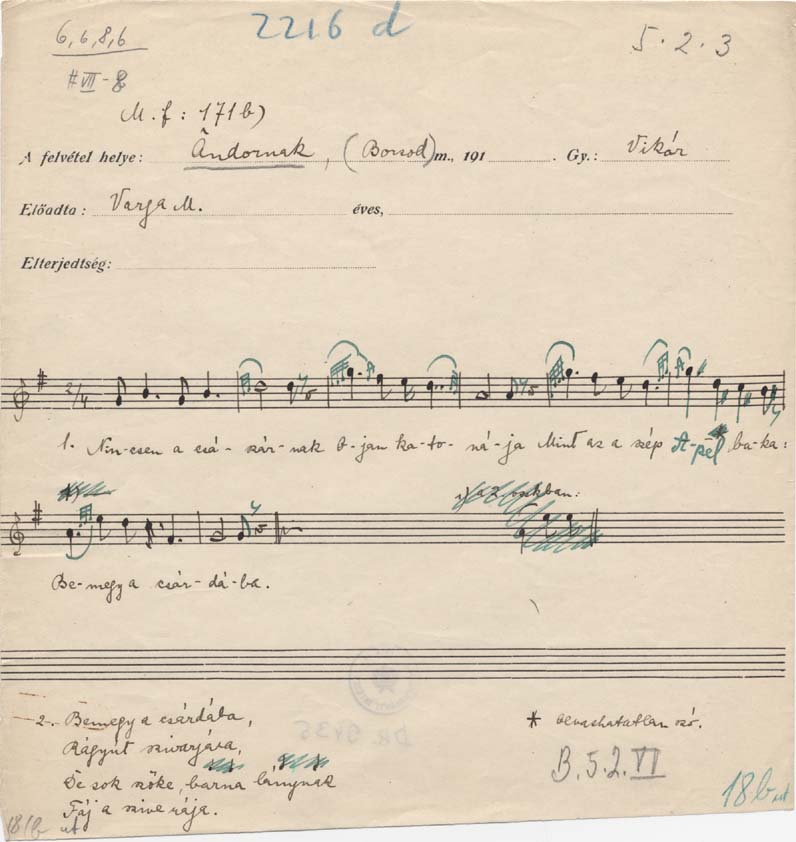 6, 6, 8, 6
2216 d
5.2.3
# VII - 8
M. f: 171b)
A felvétel helye: Andornak, (Borsod) m., 191 . Gy.: Vikár
Előadta: Varga M. éves,
Elterjedtség:
2/4
1. Nin-csen a csá-szár-nak o-jan ka-to-ná-ja Mint az a szép A-pél ba-ka:
Be-megy a csár-dá-ba.
2. Bemegy a csárdába,
Rágyút szivarjára,
De sok szőke, barna lánynak
Fáj a szive rája.
* olvashatatlan szó.
B.5.2.VI
18b
181b